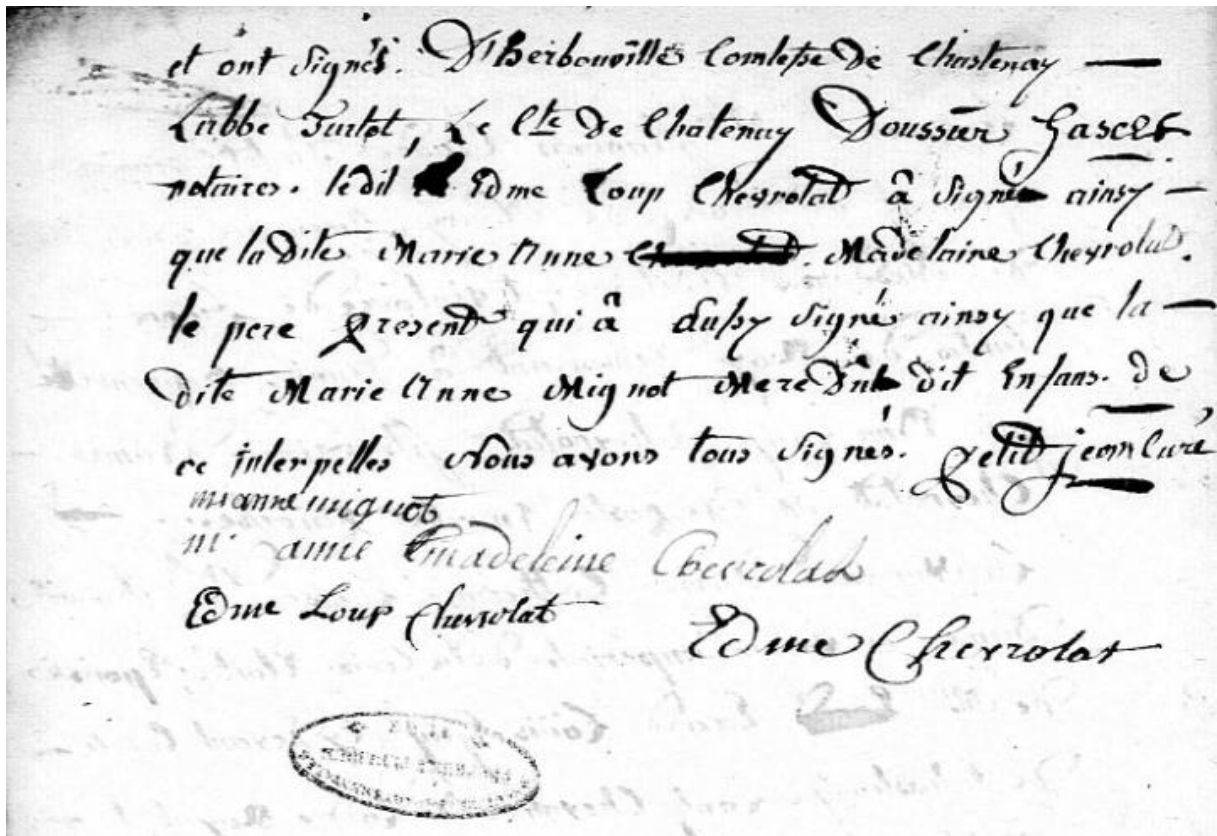 et ont signés. D'herbouville Comtesse De Chastenay
L'abbe Turlot Le Cte De Chatenay Doussier Gascet
notaires. le dit Edme Loup Chevrolat â signé ainsy
que la dite Marie Anne Madelaine Chevrolat.
le pere present qui â aussy signé ainsy que la
dite Marie Anne Mignot Mere dit Enfans. de
ce interpelles Nous avons tous signés. petit jean Curé
m anne mignot
m. anne madeleine Chevrolat
Edme Loup Chevrolat
Edme Chevrolat